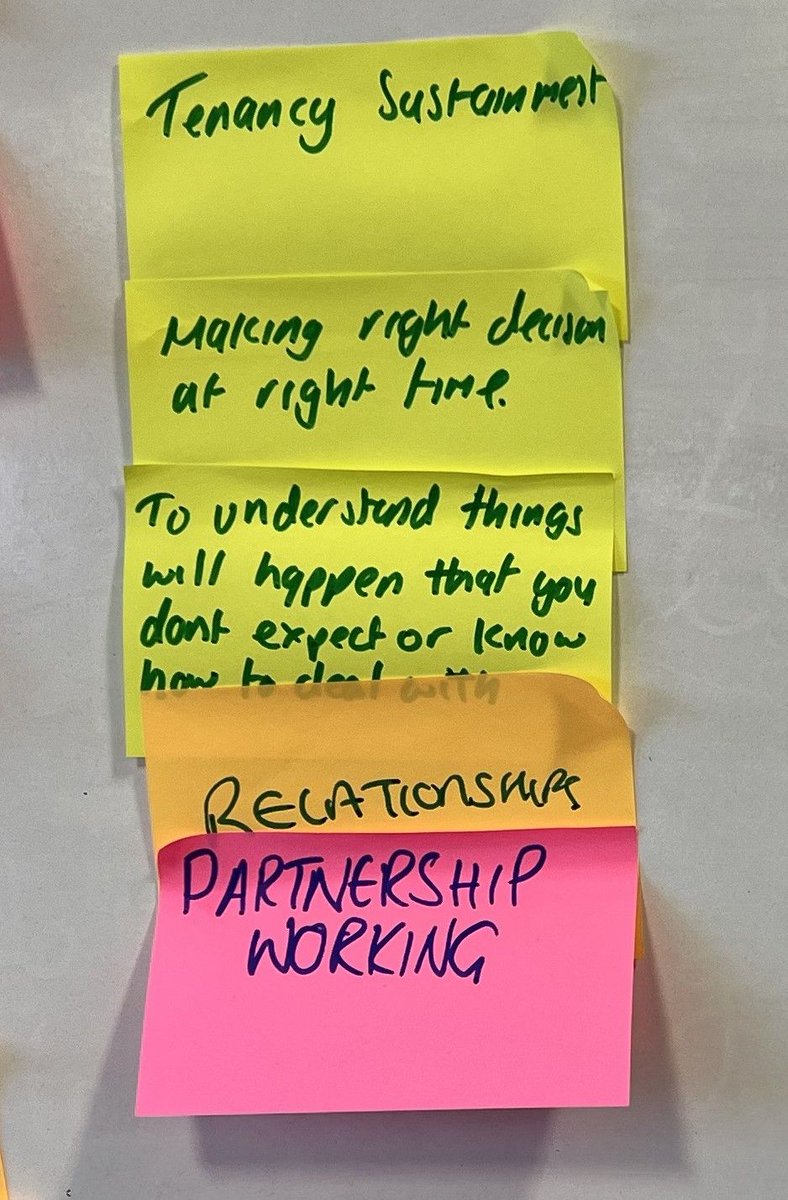 Tenancy Sustainment
Making right decison
at right time.
To understand things
will happen that you
dont expect or know
how to deal with
RELATIONSHIPS
PARTNERSHIP
WORKING